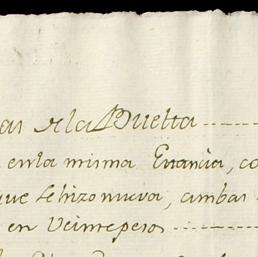 as de la Buelta
en la misma Estancia, co
que se hizo nueva, ambas
en Veinte pesos